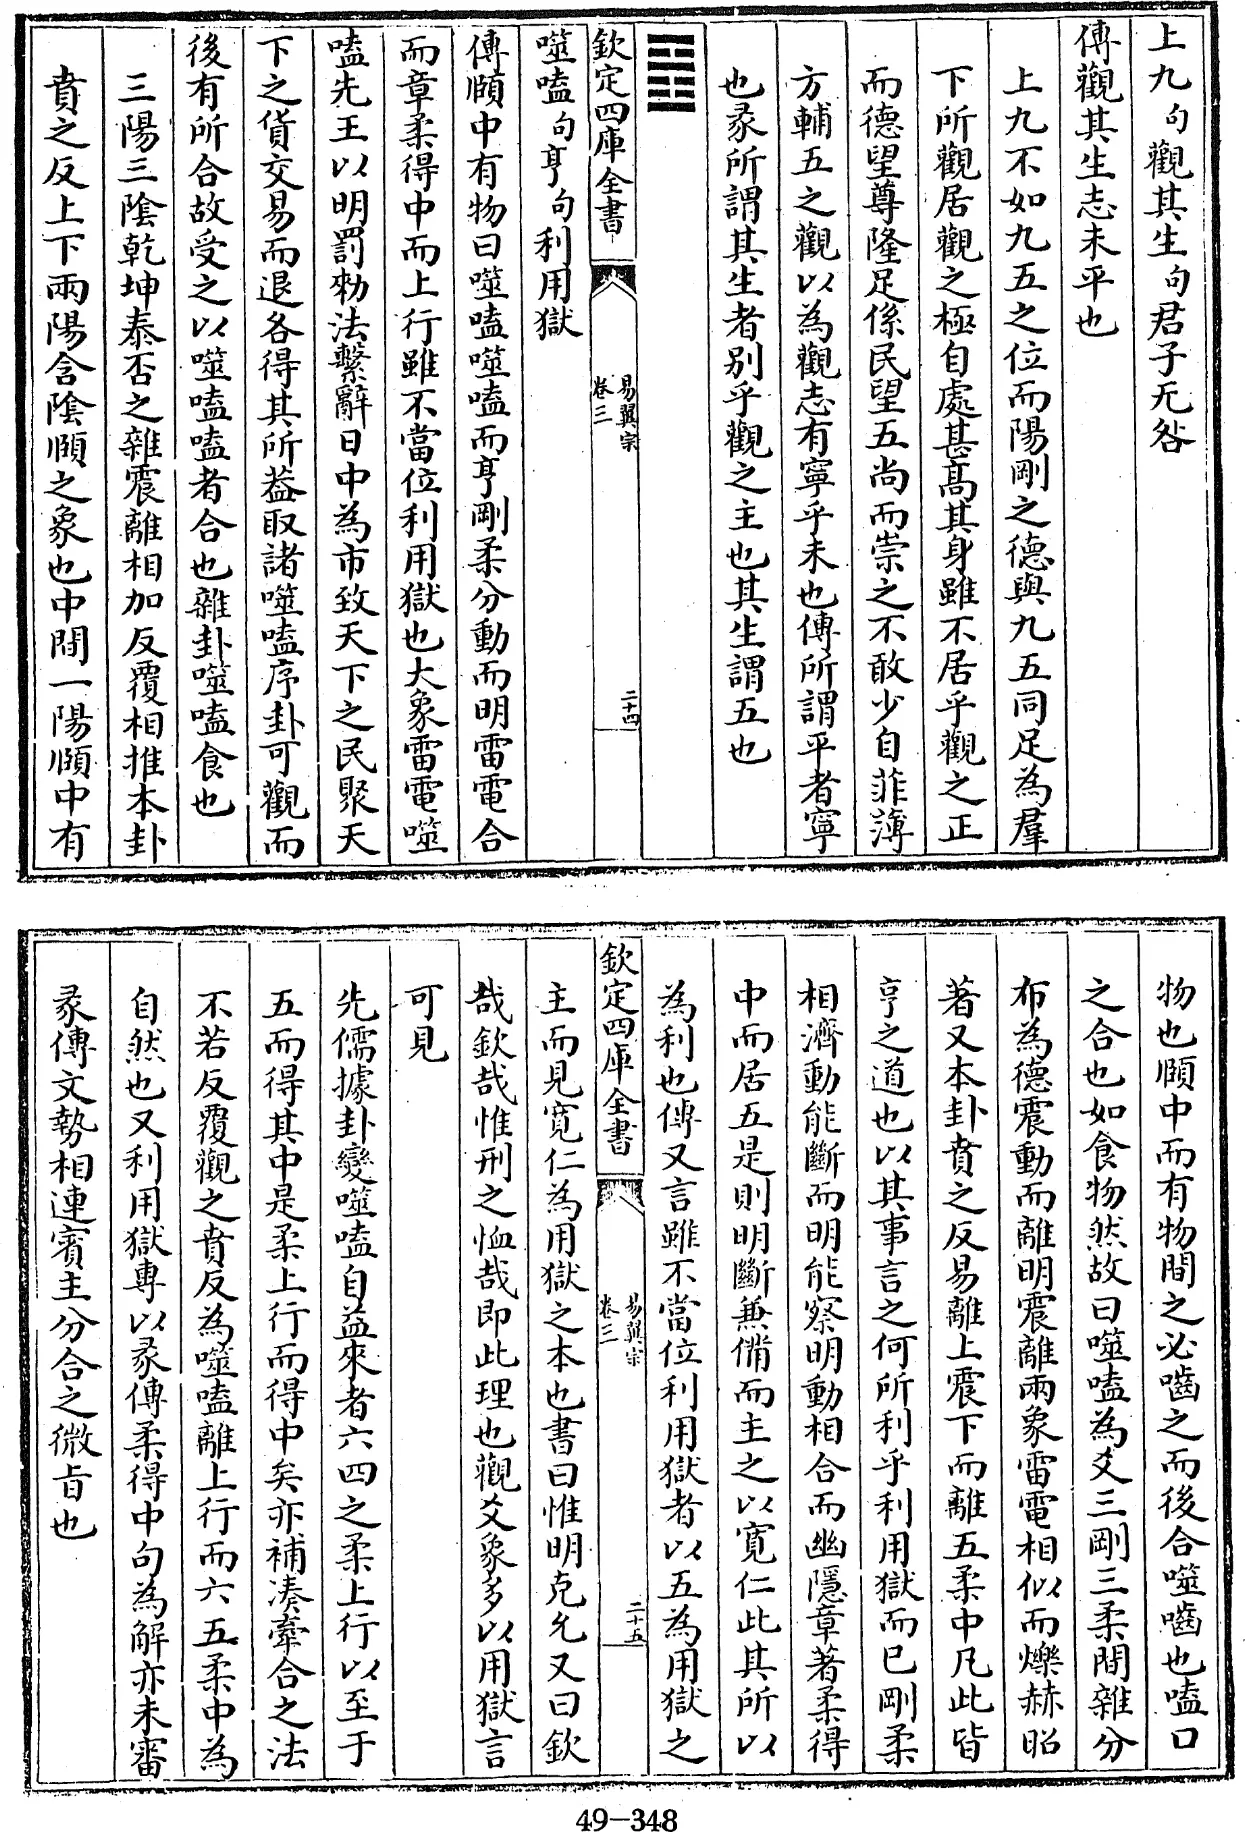 上九句觀其生句君子无咎
傳觀其生志未平也
上九不如九五之位而陽剛之德與九五同足為羣
下所觀居觀之極自處甚高其身雖不居乎觀之正
而德望尊隆足係民望五尚而崇之不敢少自菲薄
方輔五之觀以為觀志有寧乎未也傳所謂平者寧
也彖所謂其生者别乎觀之主也其生謂五也
䷔
欽定四庫全書
易翼宗
卷三
二十四
噬嗑句亨句利用獄
傳頤中有物曰噬嗑噬嗑而亨剛柔分動而明雷電合
而章柔得中而上行雖不當位利用獄也大象雷電噬
嗑先王以明罰勑法繫辭日中為市致天下之民聚天
下之貨交易而退各得其所葢取諸噬嗑序卦可觀而
後有所合故受之以噬嗑嗑者合也雜卦噬嗑食也
三陽三陰乾坤泰否之雜震離相加反覆相推本卦
賁之反上下兩陽含陰頤之象也中閒一陽頤中有
物也頤中而有物間之必嚙之而後合噬嚙也嗑口
之合也如食物然故曰噬嗑為爻三剛三柔間雜分
布為德震動而離明震離兩象雷電相似而爍赫昭
著又本卦賁之反易離上震下而離五柔中凡此皆
亨之道也以其事言之何所利乎利用獄而已剛柔
相濟動能斷而明能察明動相合而幽隱章著柔得
中而居五是則明斷兼備而主之以寬仁此其所以
為利也傳又言雖不當位利用獄者以五為用獄之
欽定四庫全書
易翼宗
卷三
二十五
主而見寬仁為用獄之本也書曰惟明克允又曰欽
哉欽哉惟刑之恤哉即此理也觀爻象多以用獄言
可見
先儒據卦變噬嗑自益來者六四之柔上行以至于
五而得其中是柔上行而得中矣亦補湊牽合之法
不若反覆觀之賁反為噬嗑離上行而六五柔中為
自然也又利用獄專以彖傳柔得中句為解亦未審
彖傳文勢相連賓主分合之微旨也
49-348